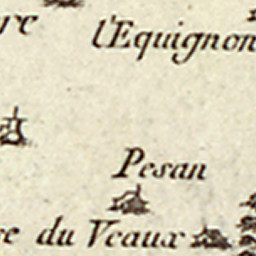 l'Equignon
Pesan
du Veaux